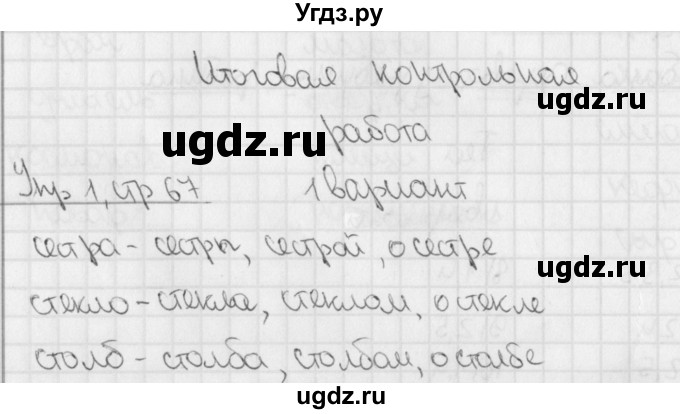 Угдз.ру
Итоговая контрольная
ugdz.ru ugdz.ru
работа
Упр 1, стр 67 1 вариант
сестра - сестры, сестрой, о сестре
ugdz.ru
стекло - стекла, стеклом, о стекле
столб - столба, столбом, о столбе
ugdz.ru